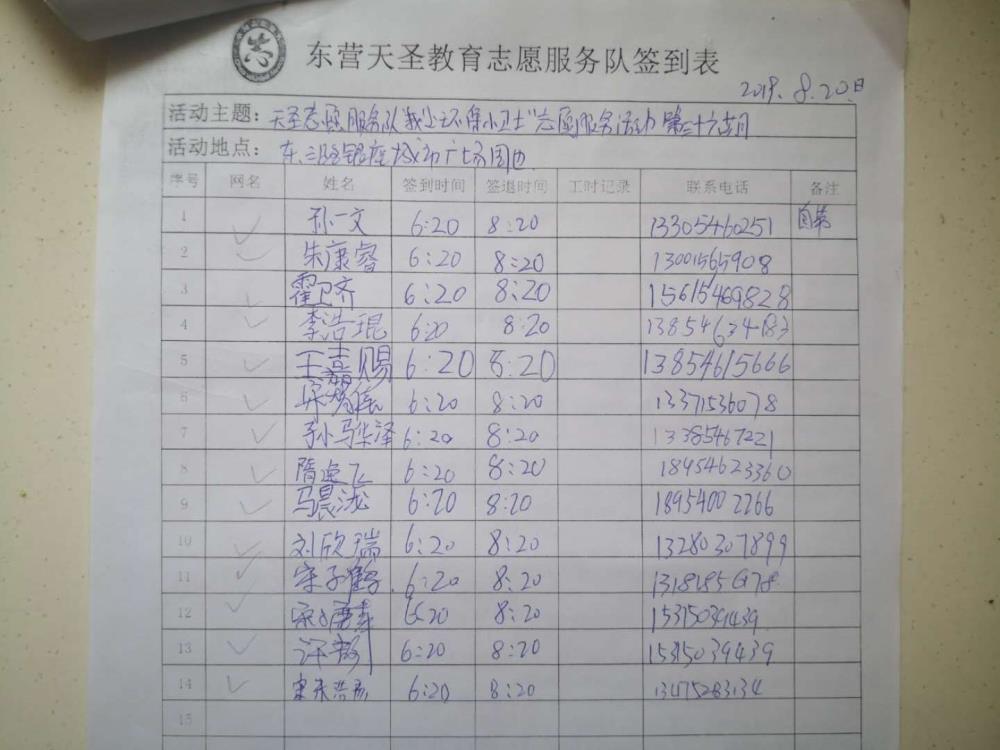 东营天圣教育志愿服务队签到表
2019.8.20日
活动主题：天圣志愿服务队"我是环保小卫士"志愿服务活动 第三十六期
活动地点：东三路银座城市广场周边
序号 网名 姓名 签到时间 签退时间 工时记录 联系电话 备注
1 孙一文 6:20 8:20 13305460251
2 朱康睿 6:20 8:20 13001565908
3 霍卫齐 6:20 8:20 15615469828
4 李浩琨 6:20 8:20 13854634183
5 王嘉赐 6:20 8:20 13854615666
6 6:20 8:20 13371536078
7 孙马华泽 6:20 8:20 13385467221
8 隋逸飞 6:20 8:20 18954623360
9 马晨泷 6:20 8:20 18954002266
10 刘欣瑞 6:20 8:20 13280307899
11 宋子鹤 6:20 8:20
12 6:20 8:20 15315039439
13 6:20 8:20 15315039439
14 6:20 8:20 13475283134
15